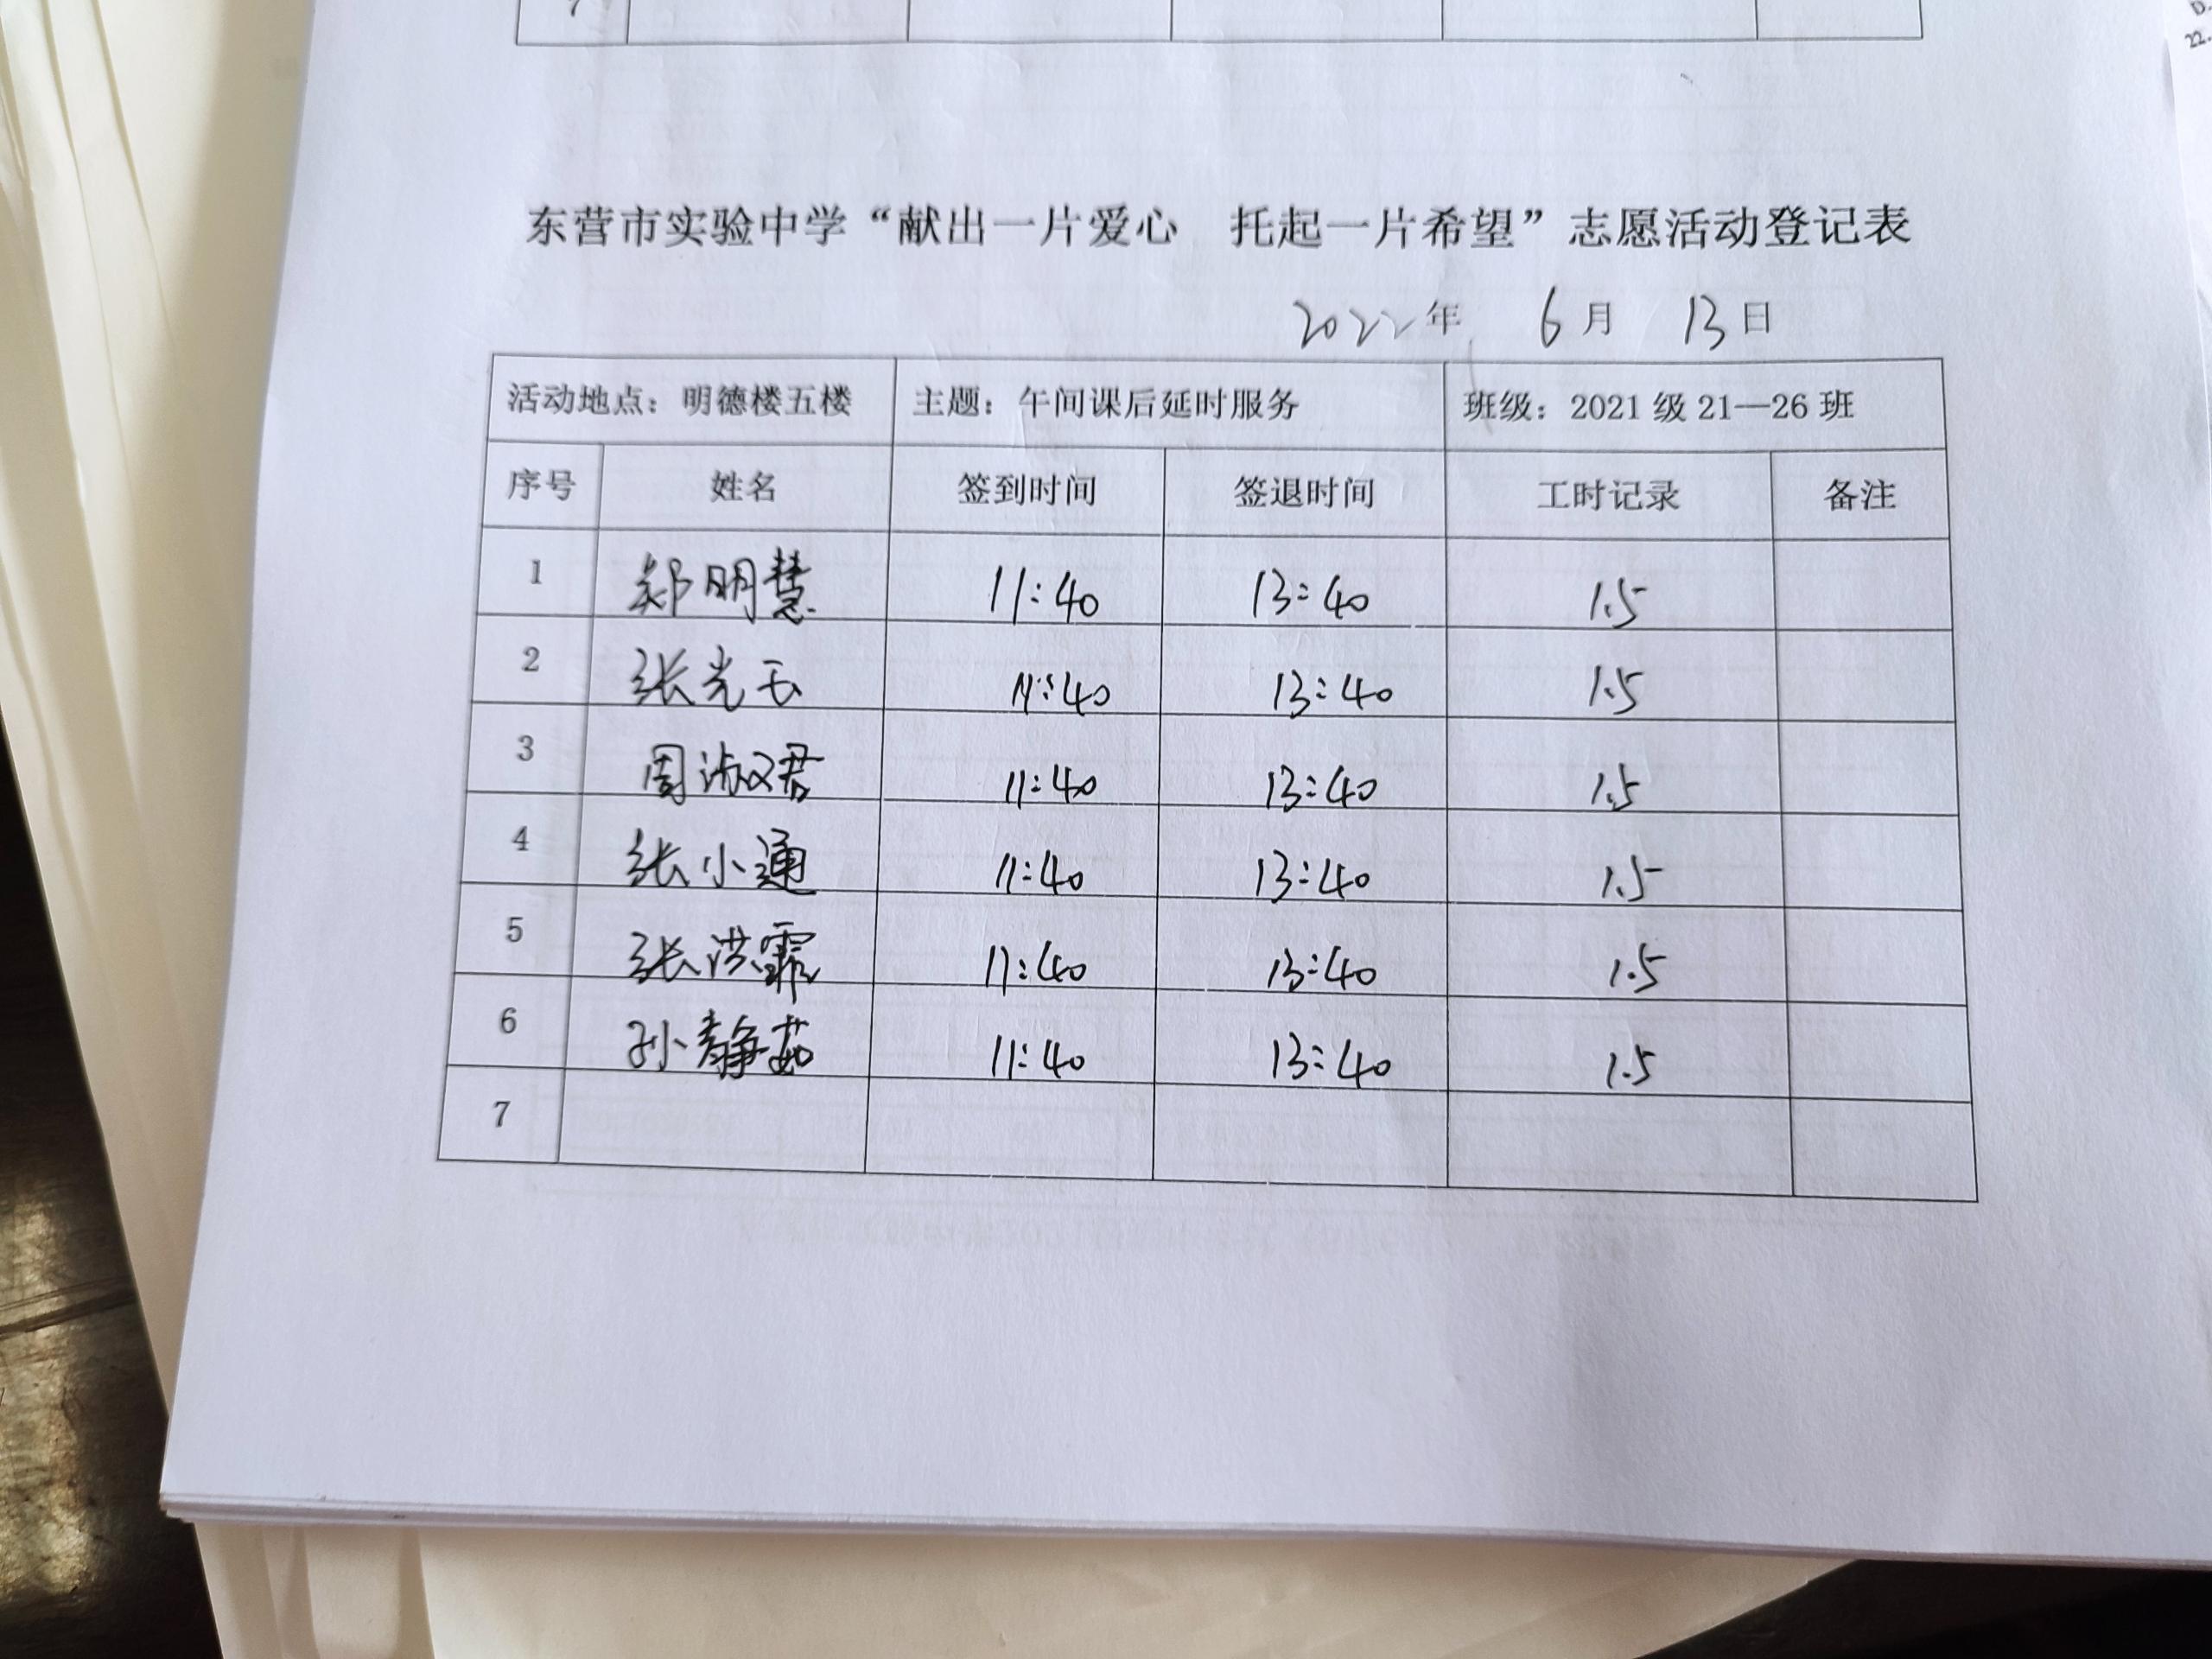 7
D.
22.
东营市实验中学“献出一片爱心 托起一片希望”志愿活动登记表
2022年 6月 13日
活动地点：明德楼五楼 主题：午间课后延时服务 班级：2021级21—26班
序号 姓名 签到时间 签退时间 工时记录 备注
1 郑明慧 11:40 13:40 1.5
2 张光玉 11:40 13:40 1.5
3 周淑君 11:40 13:40 1.5
4 张小通 11:40 13:40 1.5
5 张洪霏 11:40 13:40 1.5
6 孙静茹 11:40 13:40 1.5
7